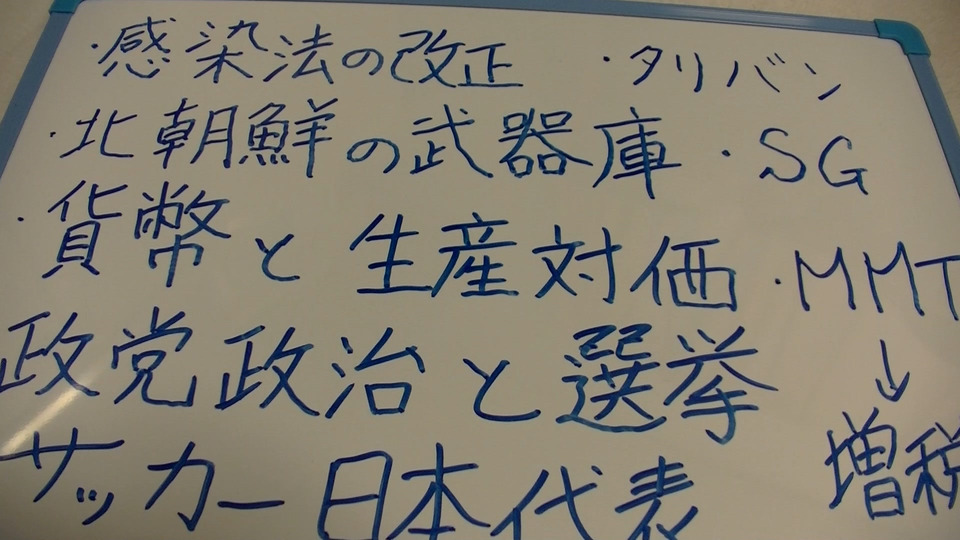 ・感染法の改正 ・タリバン
・北朝鮮の武器庫 ・SG
・貨幣と生産対価 ・MMT
政党政治と選挙 ↓
サッカー日本代表 増税